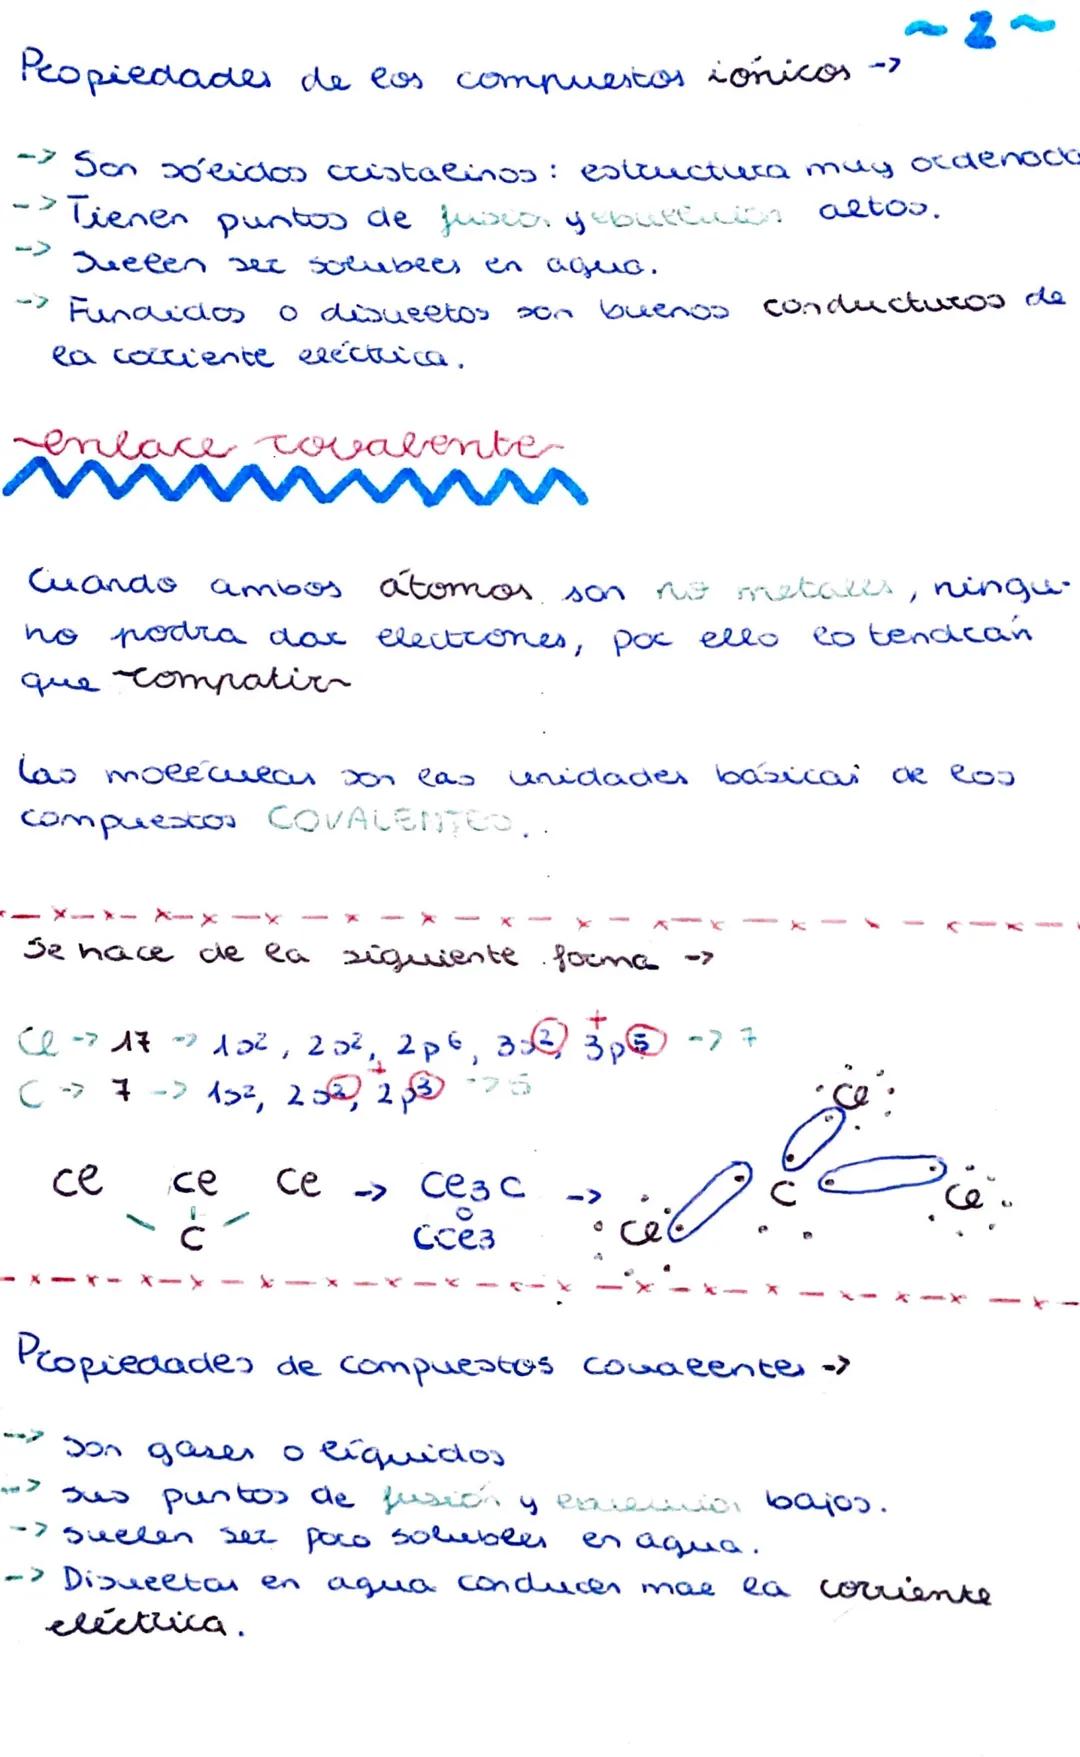 ~2~
Propiedades de los compuestos iónicos ->
-> Son sólidos cristalinos: estructura muy ordenada
-> Tienen puntos de fusión y ebullición altos.
-> Suelen ser solubles en agua.
-> Fundidos o disueltos son buenos conducturos de
la corriente eléctrica.
enlace covalente
Cuando ambos átomos son no metales, ningu-
no podra dar electrones, por ello lo tendrán
que compatir
Las moléculas son las unidades básicas de los
compuestos COVALENTES.
Se hace de la siguiente forma ->
Cl -> 17 -> 1s², 2s², 2p6, 3s2, + 3p5 -> 7
C -> 7 -> 1s², 2s2, + 2p3 -> 5
Cl Cl Cl -> Cl3C ->
C o
CCl3
Cl
C
Cl Cl
Propiedades de compuestos covalentes ->
-> Son gases o líquidos
-> Sus puntos de fusión y bajos.
-> Suelen ser poco solubles en agua.
-> Disueltas en agua conducen mal la corriente
eléctrica.